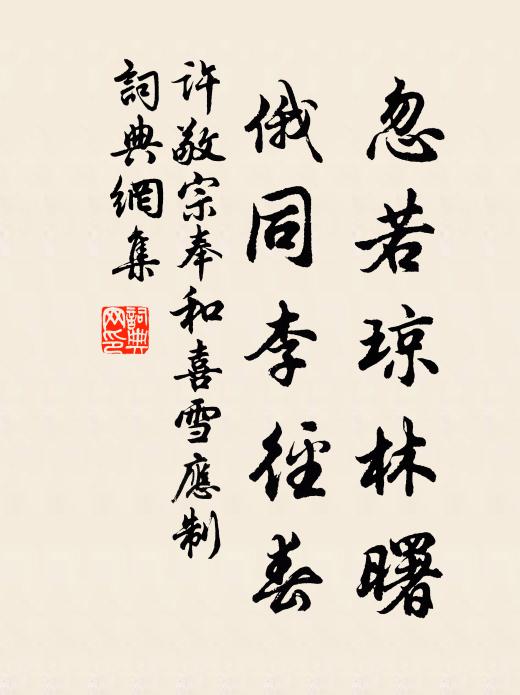 忽若琼林曙
俄同李径春
许敬宗奉和喜雪應制
詞典網集
詞典
网印